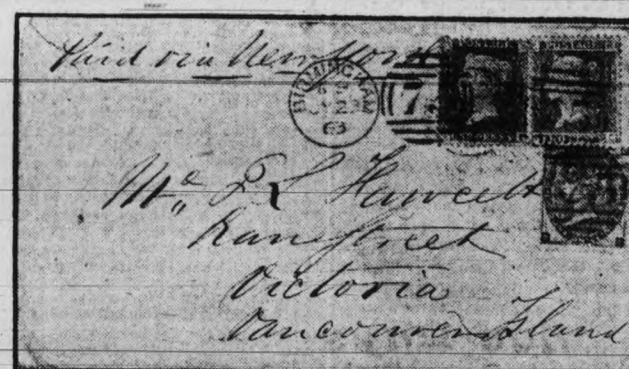 Paid via New York
BIRMINGHAM
63
7
Mr. R L Fawcett
Street
Victoria
Vancouver Island